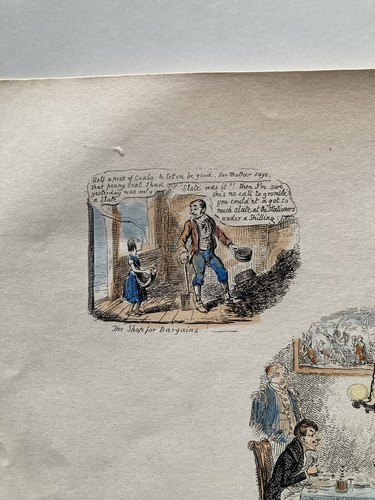 Half a peck of Coals & let 'em be good, for Mother says,
that penny loat I had
yesterday was only
a Slate.
"Slate was it"! then I'm sure
she's no call to grumble
you could'nt a got so
much slate at the Stationers
under a Shilling.
The Shop for Bargains